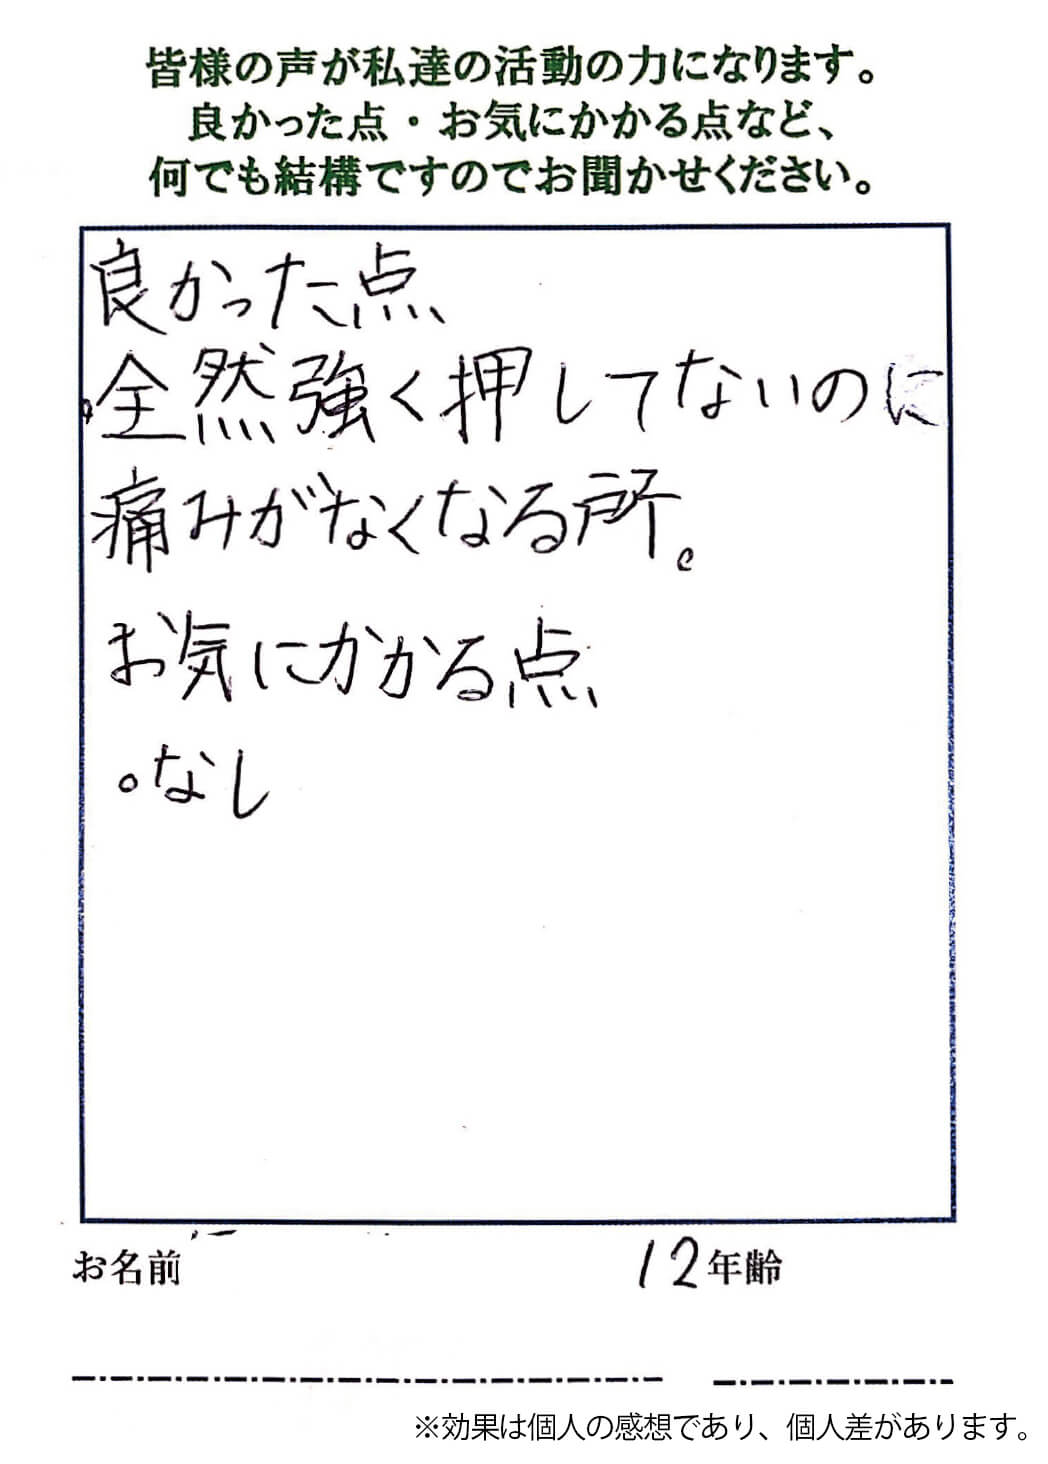 皆様の声が私達の活動の力になります。
良かった点・お気にかかる点など、
何でも結構ですのでお聞かせください。
良かった点、
。全然強く押してないのに
痛みがなくなる所。
お気にかかる点
。なし
お名前 12年齢
※効果は個人の感想であり、個人差があります。